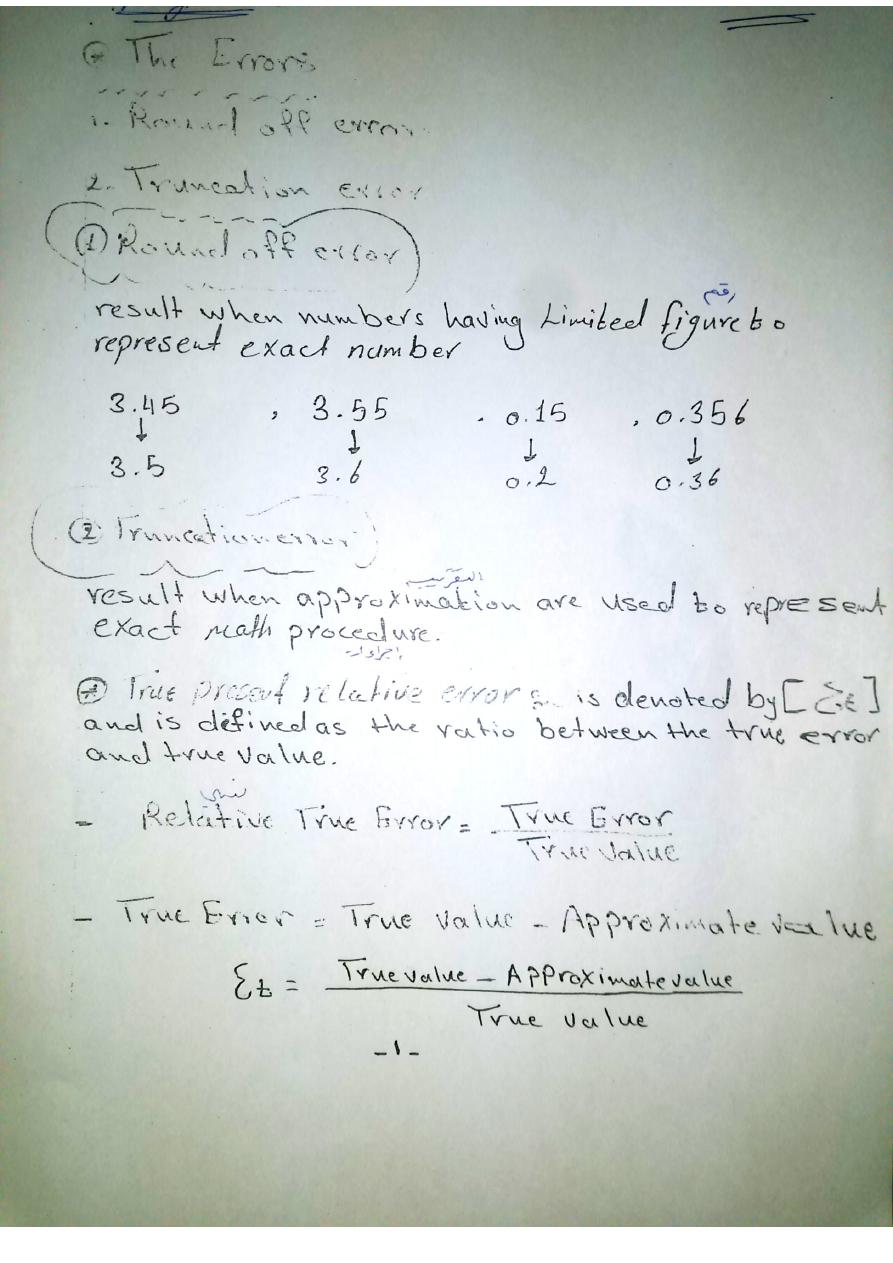 The Errors
1. Round off error
2. Truncation error
① Round off error
رقم
result when numbers having Limited figure to
represent exact number
3.45 , 3.55 . 0.15 , 0.356
↓ ↓ ↓ ↓
3.5 3.6 0.2 0.36
② Truncation error
التقريب
result when approximation are used to represent
exact math procedure.
اجراءات
True present relative error is denoted by [Σt]
and is defined as the ratio between the true error
and true value.
نسبي
- Relative True Error = True Error
True Value
- True Error = True value - Approximate value
Σt = True value - Approximate value
True value
-1-